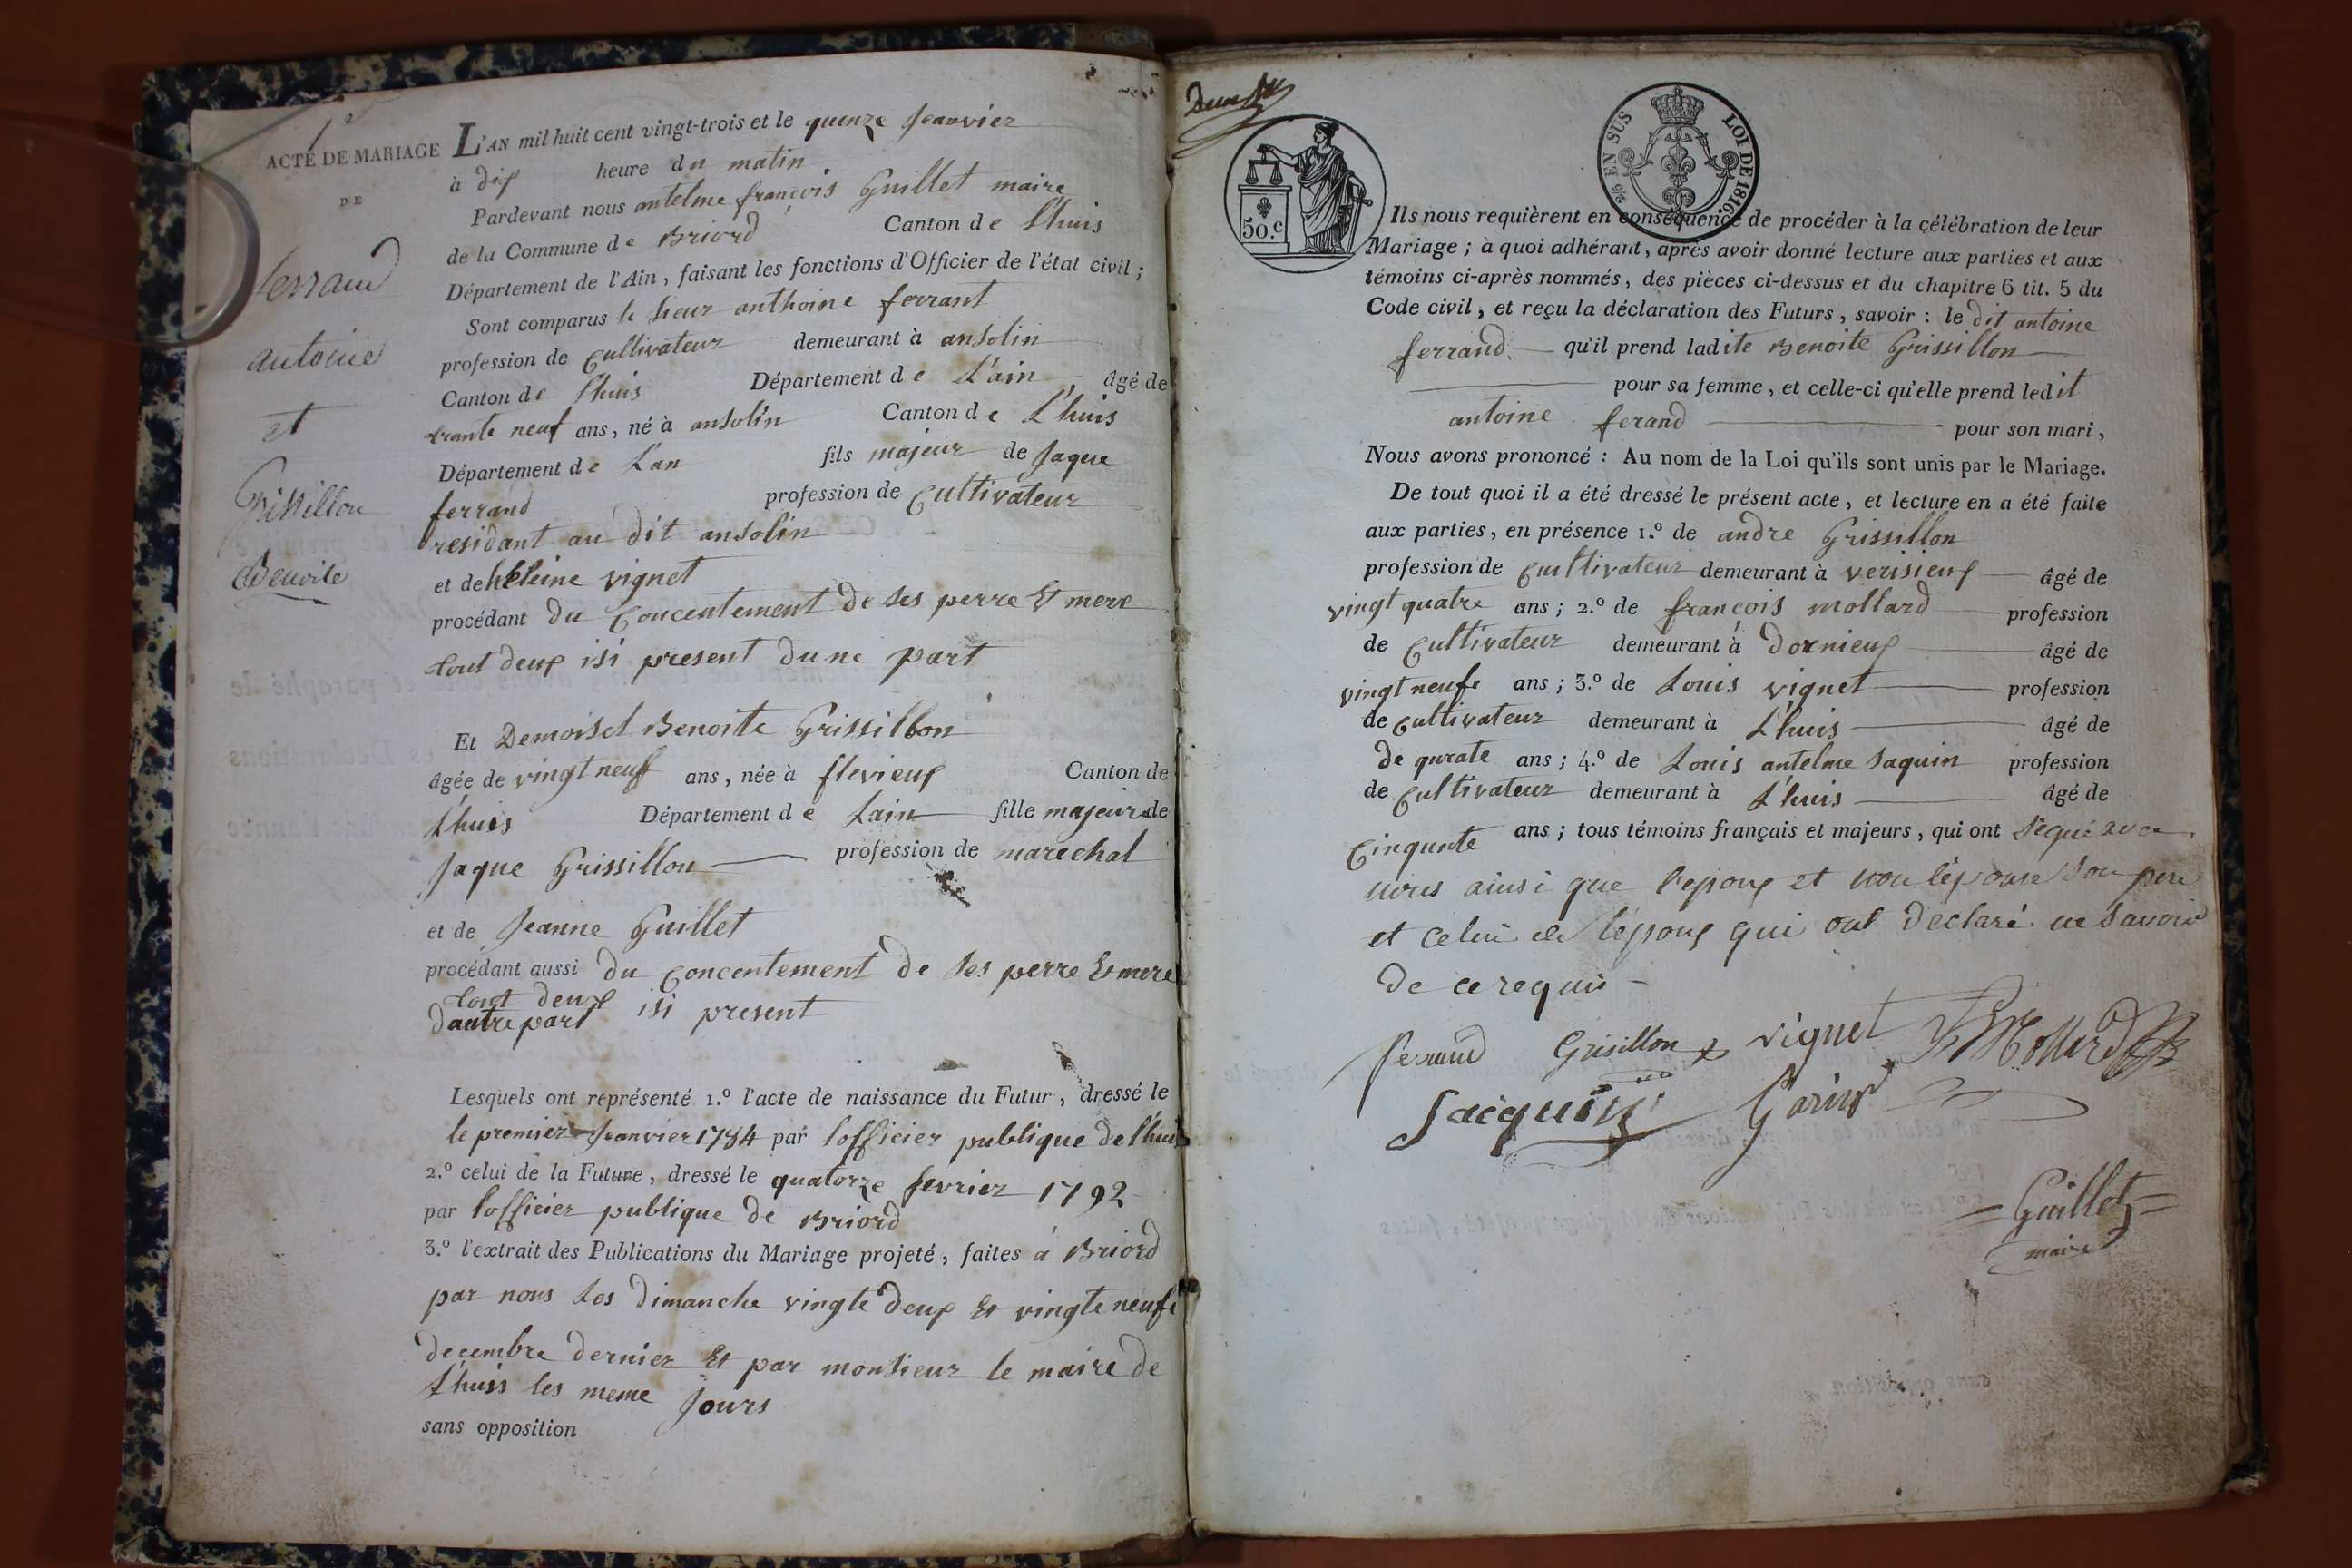 1e
ACTE DE MARIAGE
DE
ferrand
antoine
et
Grissillon
Benoite
L'AN mil huit cent vingt-trois et le quenze Jeanvier
à dix heure du matin
Pardevant nous antelme françois Guillet maire
de la Commune de Briord Canton de L'huis
Département de l'Ain, faisant les fonctions d'Officier de l'état civil ;
Sont comparus le sieur anthoine ferrant
profession de Cultivateur demeurant à ansolin
Canton de L'huis Département de L'ain, âgé de
trante neuf ans, né à ansolin Canton de L'huis
Département de L'an fils majeur de Jaque
ferrand profession de Cultivateur
residant au dit ansolin
et de heleine vignet
procédant du Concentement de ses perre Et mere
tout deux isi present dune part
Et Demoisel Benoite Grissillon
âgée de vingt neuf ans, née à flevieux Canton de
L'huis Département de Lain fille majeur de
Jaque Grissillon profession de marechal
et de Jeanne Guillet
procédant aussi du Concentement de ses perre Et mere
tout deux isi present
d'autre part
Lesquels ont représenté 1.º l'acte de naissance du Futur, dressé le
le premier Jeanvier 1784 par lofficier publique de l'huis
2.º celui de la Future, dressé le quatorze fevrier 1792
par lofficier publique de Briord
3.º l'extrait des Publications du Mariage projeté, faites à Briord
par nous Les dimanche vingte deux Et vingte neufe
decembre dernier Et par monsieur le maire de
L'huis les meme Jours
sans opposition
50.c
EN SUS LOI DE 1816.
Ils nous requièrent en conséquence de procéder à la célébration de leur
Mariage ; à quoi adhérant, après avoir donné lecture aux parties et aux
témoins ci-après nommés, des pièces ci-dessus et du chapitre 6 tit. 5 du
Code civil, et reçu la déclaration des Futurs, savoir : le dit antoine
ferrand qu'il prend ladite Benoite Grissillon
pour sa femme, et celle-ci qu'elle prend ledit
antoine ferand pour son mari,
Nous avons prononcé : Au nom de la Loi qu'ils sont unis par le Mariage.
De tout quoi il a été dressé le présent acte, et lecture en a été faite
aux parties, en présence 1.º de andre Grissillon
profession de Cultivateur demeurant à verisieux âgé de
vingt quatre ans ; 2.º de françois mollard profession
de Cultivateur demeurant à dornieux âgé de
vingt neufe ans ; 3.º de Louis vignet profession
de Cultivateur demeurant à L'huis âgé de
de qurate ans ; 4.º de Louis antelme Jaquin profession
de Cultivateur demeurant à L'huis âgé de
Cinqunte ans ; tous témoins français et majeurs, qui ont signé avec
nous ainsi que l'epoux et non lépouse son pere
et celui de lépoux qui ont declaré ne savoir
de ce requis
ferrand Grisillon vignet Mollard
Jacquin
Guillet
maire